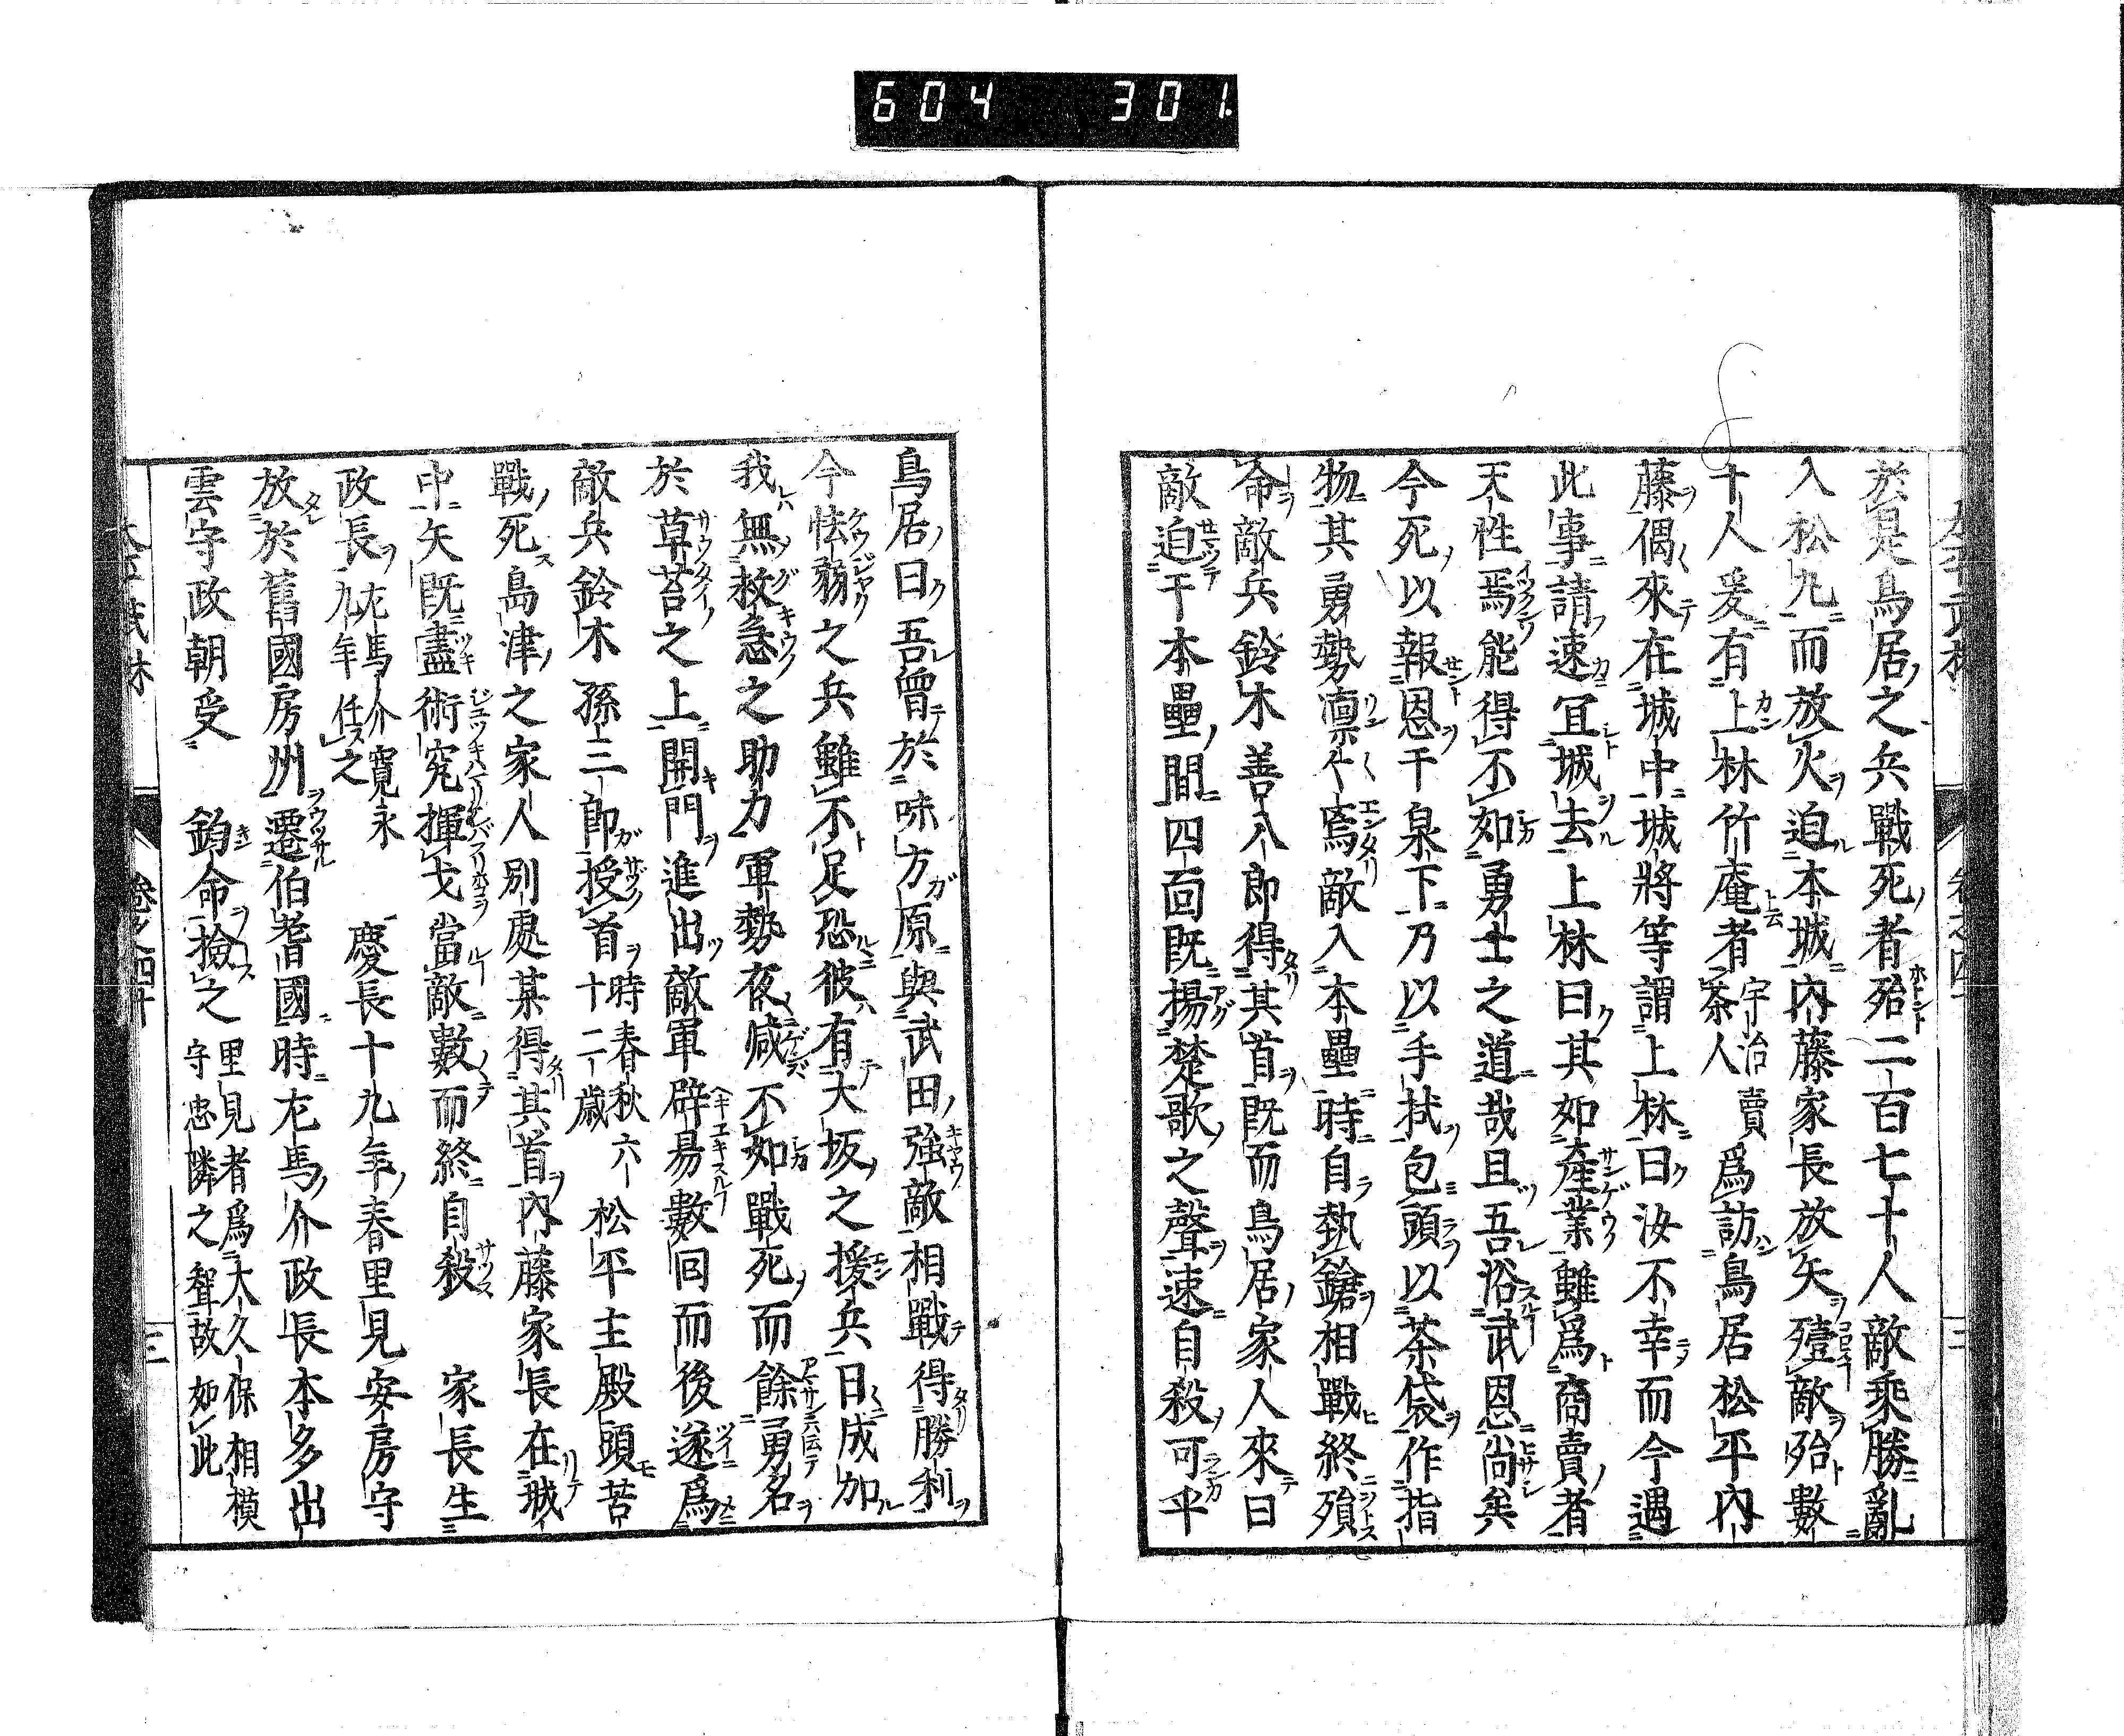 604 301.
於是鳥居之兵戰死者殆二百七十人敵乘勝亂
入松丸而放火迫本城內藤家長放矢殪敵殆數
十人爰有上林竹庵者宇治茶人賣爲訪鳥居松平內
藤偶來在城中城將等謂上林曰汝不幸而今遇
此事請速宜城去上林曰其如產業雖爲商賣者
天性焉能得不如勇士之道哉且吾浴武恩尚矣
今死以報恩于泉下乃以手拭包頭以茶袋作指
物其勇勢凛々焉敵入本壘時自執鎗相戰終殞
命敵兵鈴木善八郎得其首既而鳥居家人來曰
敵迫于本壘間四面既揚楚歌之聲速自殺可乎
鳥居曰吾曾於味方原與武田強敵相戰得勝利
今怯弱之兵雖不足恐彼有大坂之援兵日成加
我無救急之助力軍勢夜減不如戰死而餘勇名
於草苔之上開門進出敵軍辟易數回而後遂爲
敵兵鈴木孫三郎授首時春秋六十二歲松平主殿頭苦
戰死島津之家人別處某得其首內藤家長在城
中矢既盡術究揮戈當敵數而終自殺 家長生
政長左馬介寬永九年任之 慶長十九年春里見安房守
放於舊國房州遷伯耆國時左馬介政長本多出
雲守政朝受 鈞命撿之里見者爲大久保相模守忠隣之聟故如此
卷之四十
三